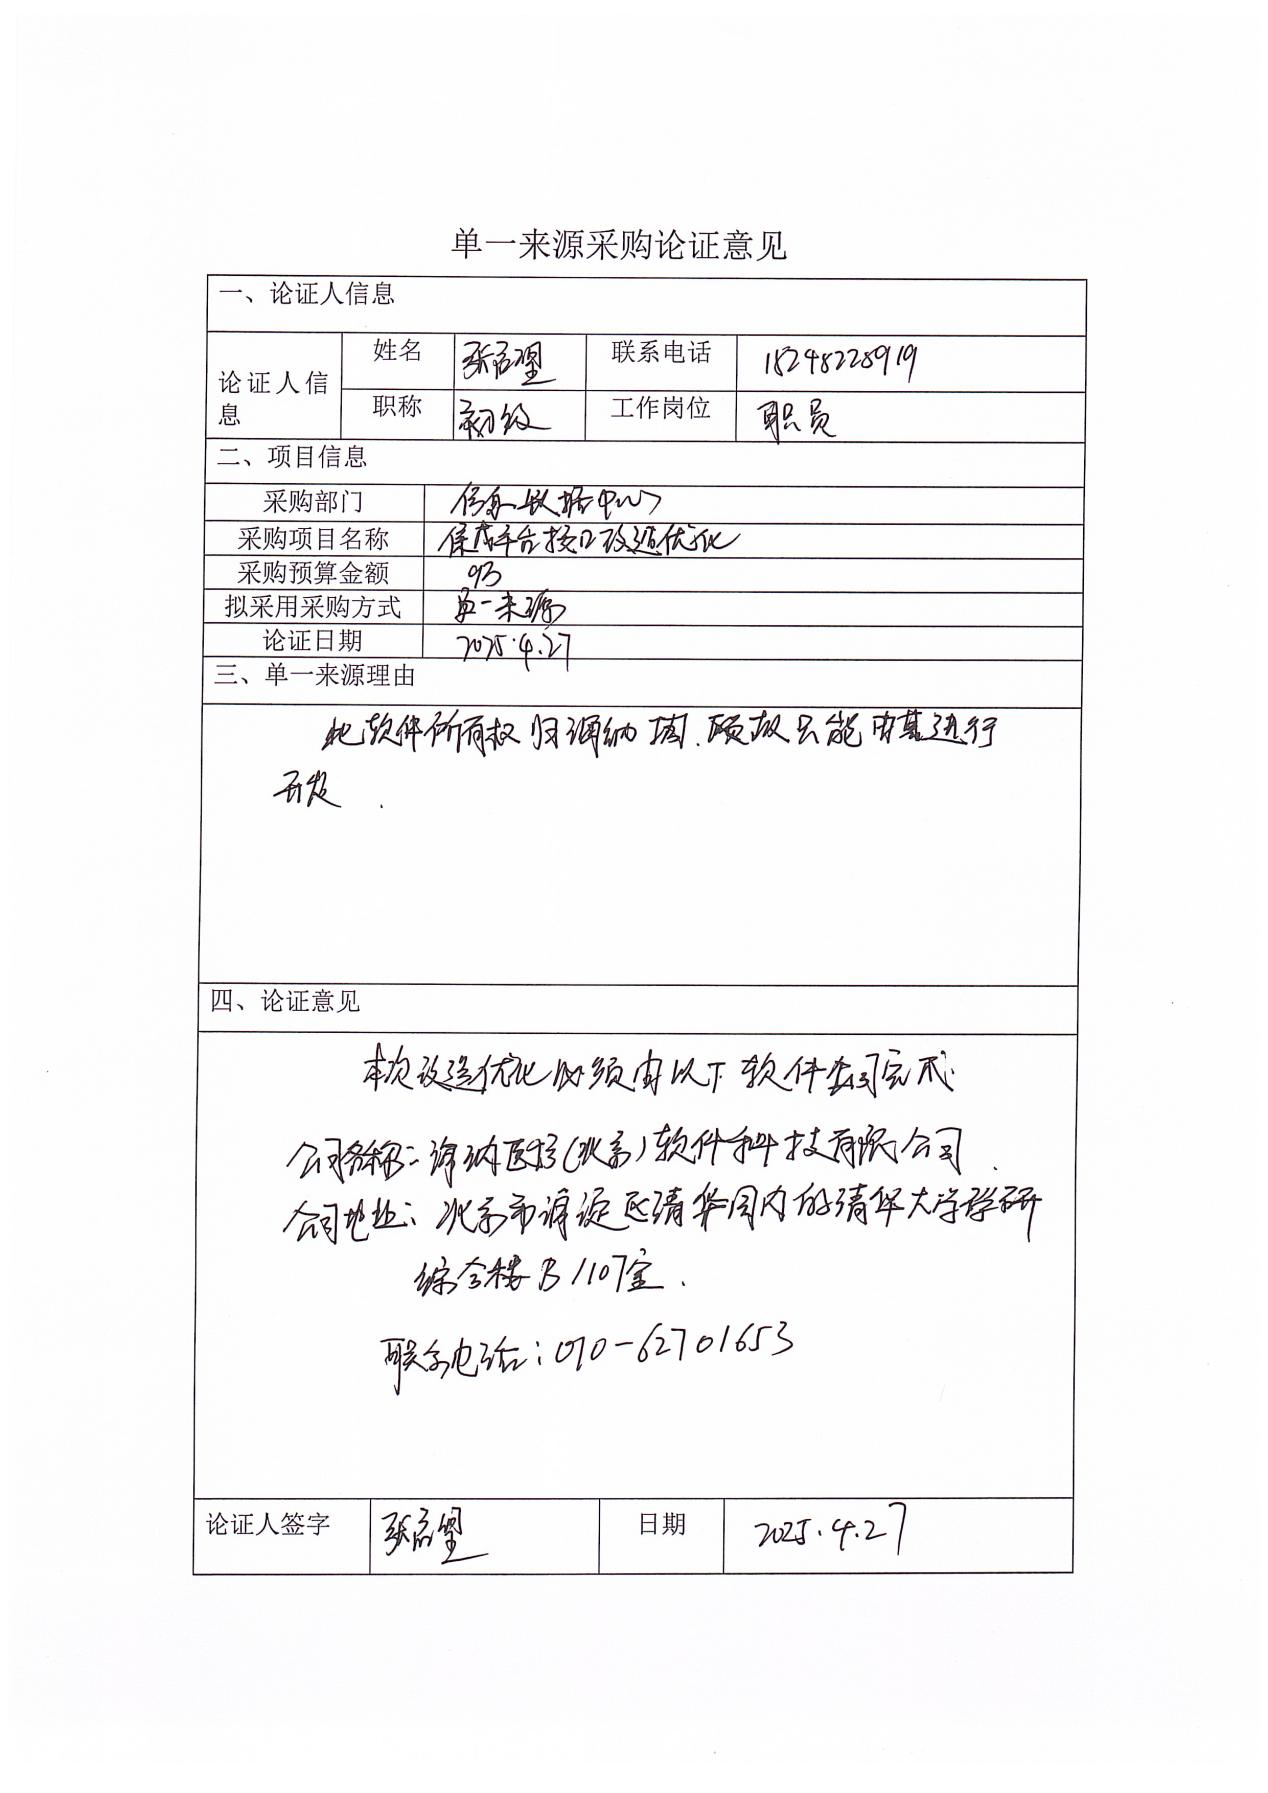 单一来源采购论证意见
一、论证人信息
论证人信息 姓名 联系电话 18248228919
职称 初级 工作岗位 职员
二、项目信息
采购部门 信息数据中心
采购项目名称 平台接口改造优化
采购预算金额 9万
拟采用采购方式 单一来源
论证日期 2025.4.27
三、单一来源理由
此软件所有权归 纳 只能由其进行
开发.
四、论证意见
本次改造优化必须由以下软件公司完成:
公司名称: 纳医疗(北京)软件科技有限公司.
公司地址: 北京市海淀区清华园内的清华大学学研
综合楼B1107室.
联系电话:010-62701653
论证人签字 日期 2025.4.27